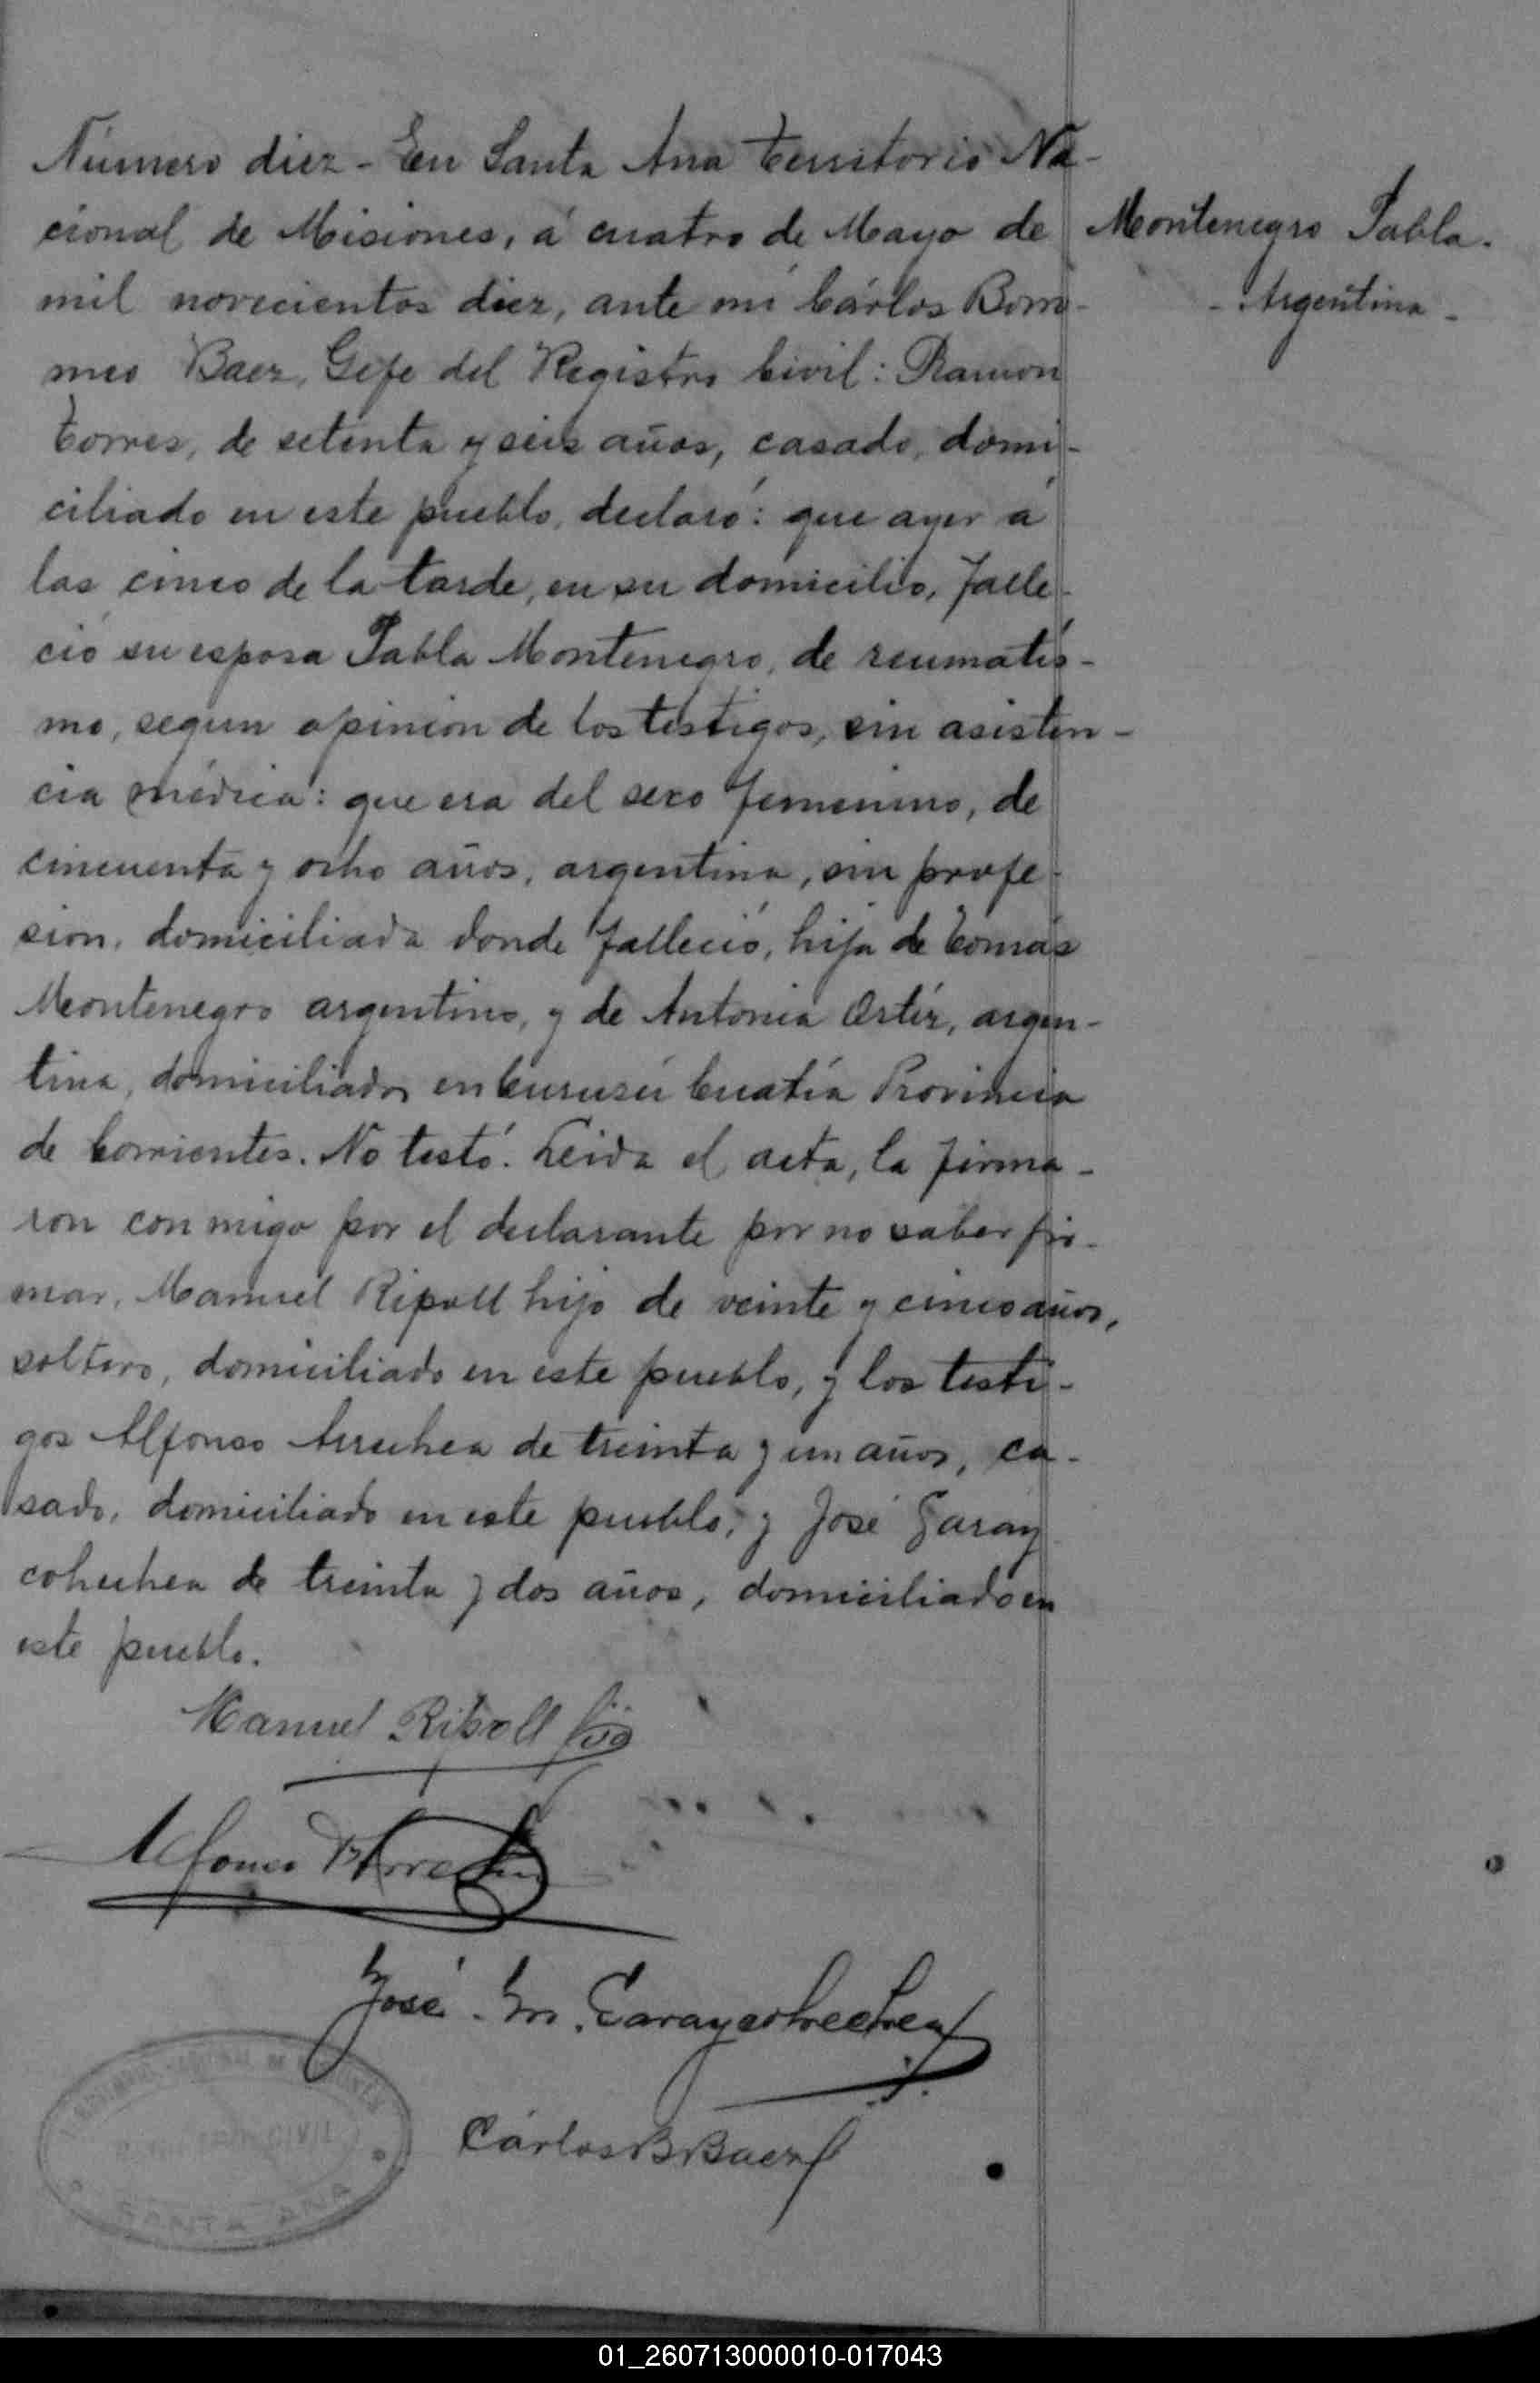 Número diez - En Santa Ana Territorio Na-
cional de Misiones, á cuatro de Mayo de
Montenegro Pabla.
- Argentina -
mil novecientos diez, ante mi Cárlos Borro-
meo Baez, Gefe del Registro Civil: Ramon
Torres, de setenta y seis años, casado, domi-
ciliado en este pueblo, declaró: que ayer á
las cinco de la tarde, en su domicilio, falle-
ció su esposa Pabla Montenegro, de reumatis-
mo, segun opinion de los testigos, sin asisten-
cia médica: que era del sexo femenino, de
cincuenta y ocho años, argentina, sin profe-
sion, domiciliada donde falleció, hija de Tomás
Montenegro argentino, y de Antonia Ortíz, argen-
tina, domiciliados en Curuzú Cuatía Provincia
de Corrientes. No testó. Leida el acta, la firma-
ron conmigo por el declarante por no saber fir-
mar, Manuel Ripoll hijo de veinte y cinco años,
soltero, domiciliado en este pueblo, y los testi-
gos Alfonso Arrechea de treinta y un años, ca-
sado, domiciliado en este pueblo, y José Garay
cohechea de treinta y dos años, domiciliado en
este pueblo.
Manuel Ripoll hijo
Alfonso Arrechea
José M. Garaycohechea
Cárlos B Baez
01_260713000010-017043